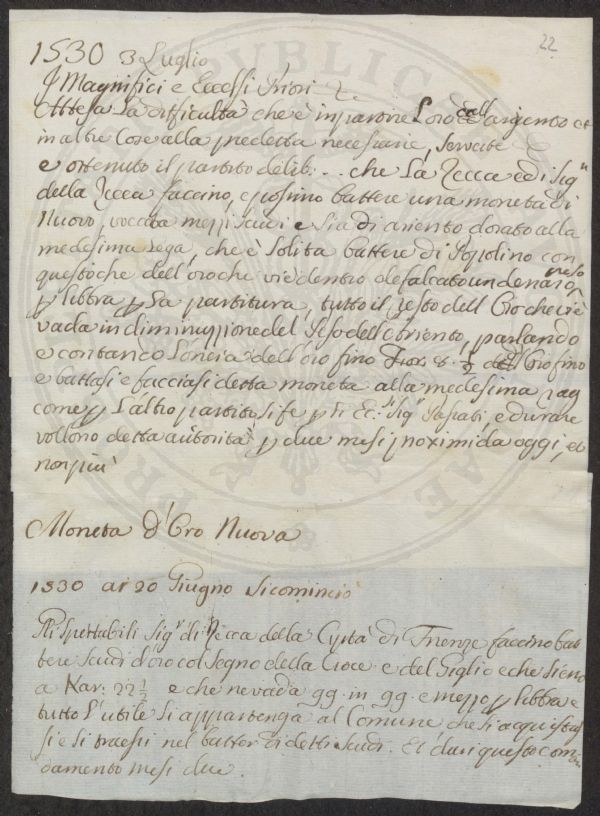 22
1530 3 Luglio
I Magnifici e Eccelsi Priori
Attesa La difficultà che è in partire L'oro dall argento et
in altre Cose alla predetta necessarie, servate
e ottenuto il partito delib... che La Zecca ed i Sig.ri
della Zecca faccino, e possino battere una moneta di
Nuovo, vocata mezzi scudi e sia di ariento dorato alla
medesima Lega, che è solita battere di Popolino con
questo che dell'oro che vi è dentro defalcato un denaro peso
p libbra p La partitura, tutto il resto dell Oro che vi è
vada in diminuzione del Peso dell'Ariento, parlando
e contando L'oncia dell'oro fino Fior. 8. dell Oro fino
e battasi e facciasi detta moneta alla medesima
come p L'altro partito si fe p li Ec.si Sig.ri Passati, e durare
vollono detta autorità p due mesi proximi da oggi, et
non più
Moneta d'Oro Nuova
1530 ai 20 Giugno Si cominciò
Gli Spettabili Sig.ri di Zecca della Città di Firenze faccino bat
tere scudi d'oro col segno della Croce e del Giglio e che sieno
a Kar: 22 1/2 e che ne vada 99. in 99. e mezzo p libbra e
tutto L'utile si appartenga al Comune che si acquistas
si e si traessi nel batter di detti scudi. Et duri questo com
damento mesi due.
PUBLICA